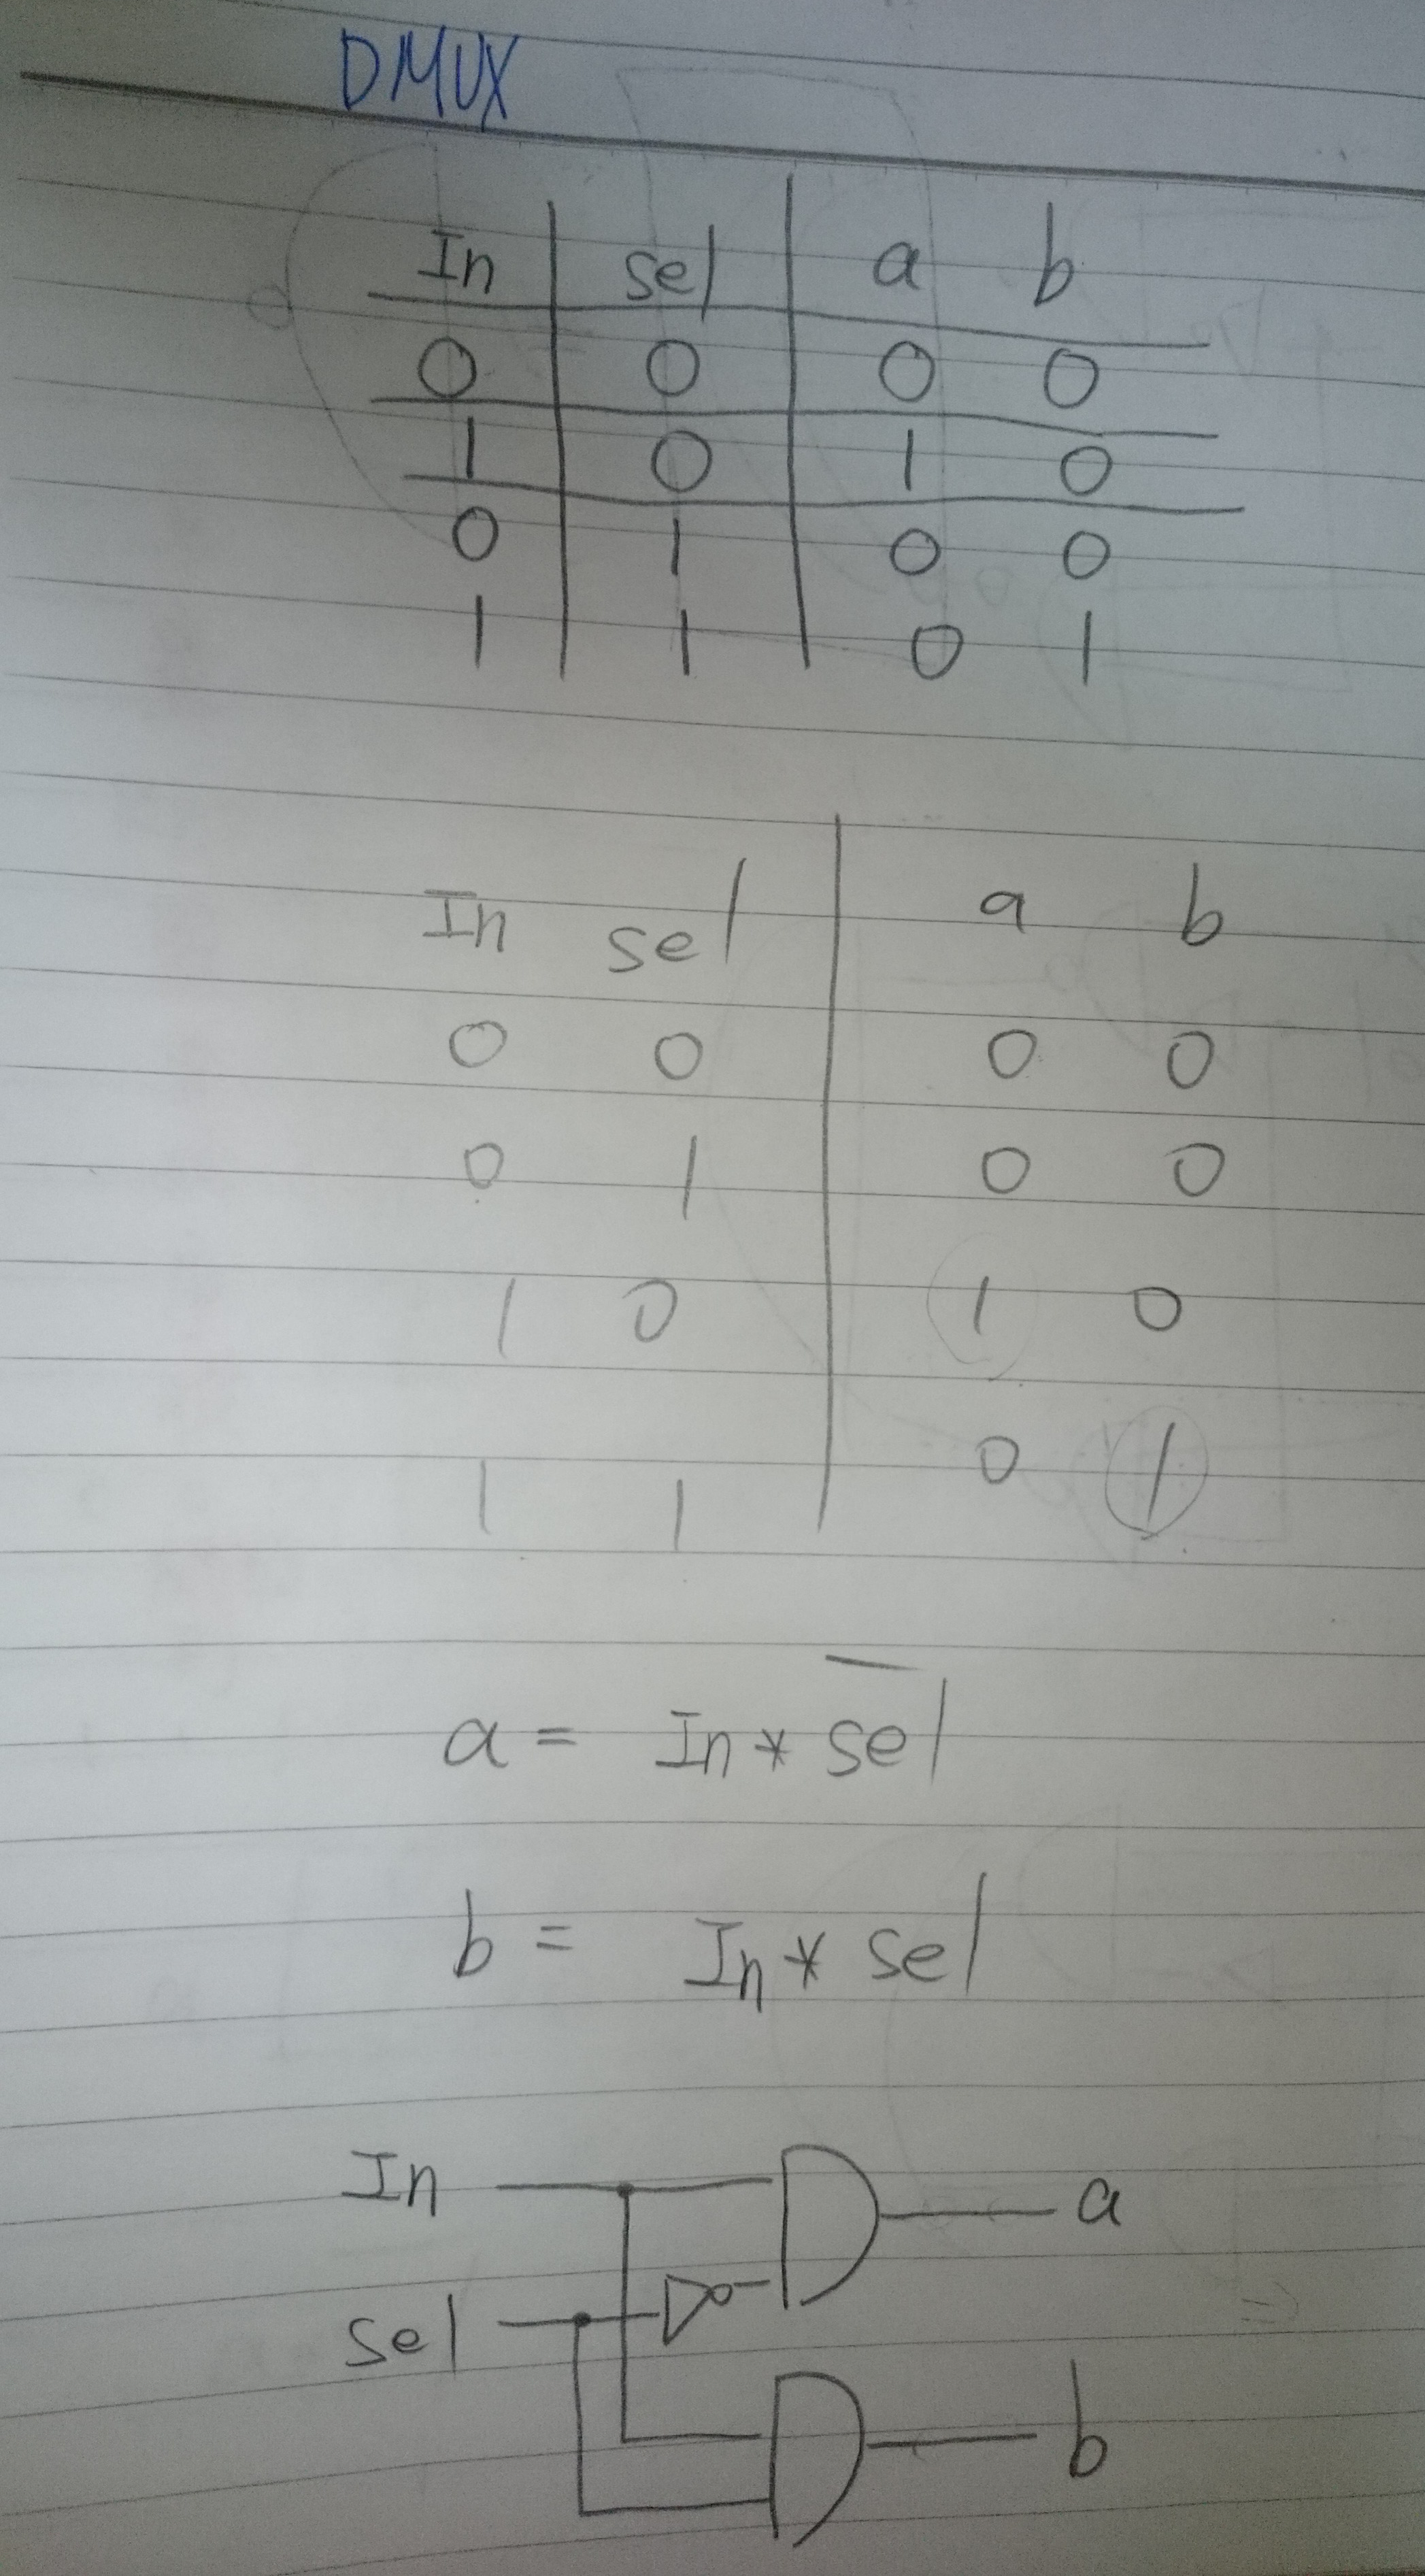 DMUX
In sel a b
0 0 0 0
1 0 1 0
0 1 0 0
1 1 0 1
In sel a b
0 0 0 0
0 1 0 0
1 0 1 0
1 1 0 1
a = In * s̅e̅l̅
b = In * sel
In a
sel
b